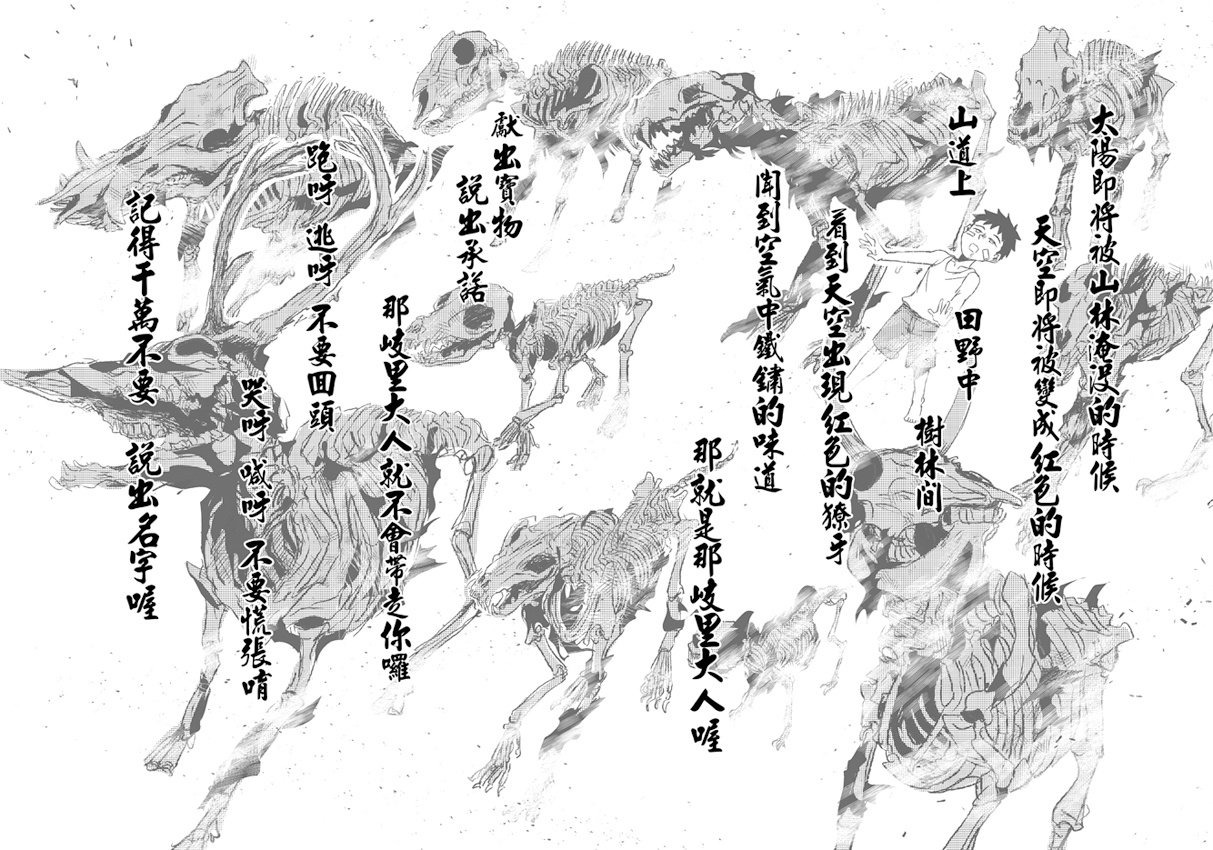 太陽即將被山林淹沒的時候
天空即將被變成紅色的時候
山道上
田野中
樹林间
看到天空出現紅色的獠牙
聞到空氣中鐵鏽的味道
那就是那岐里大人喔
獻出寶物
說出承諾
那岐里大人就不會帶走你囉
跑呼 逃呼 不要回頭
哭呼 喊呼 不要慌張唷
記得千萬不要 說出名字喔